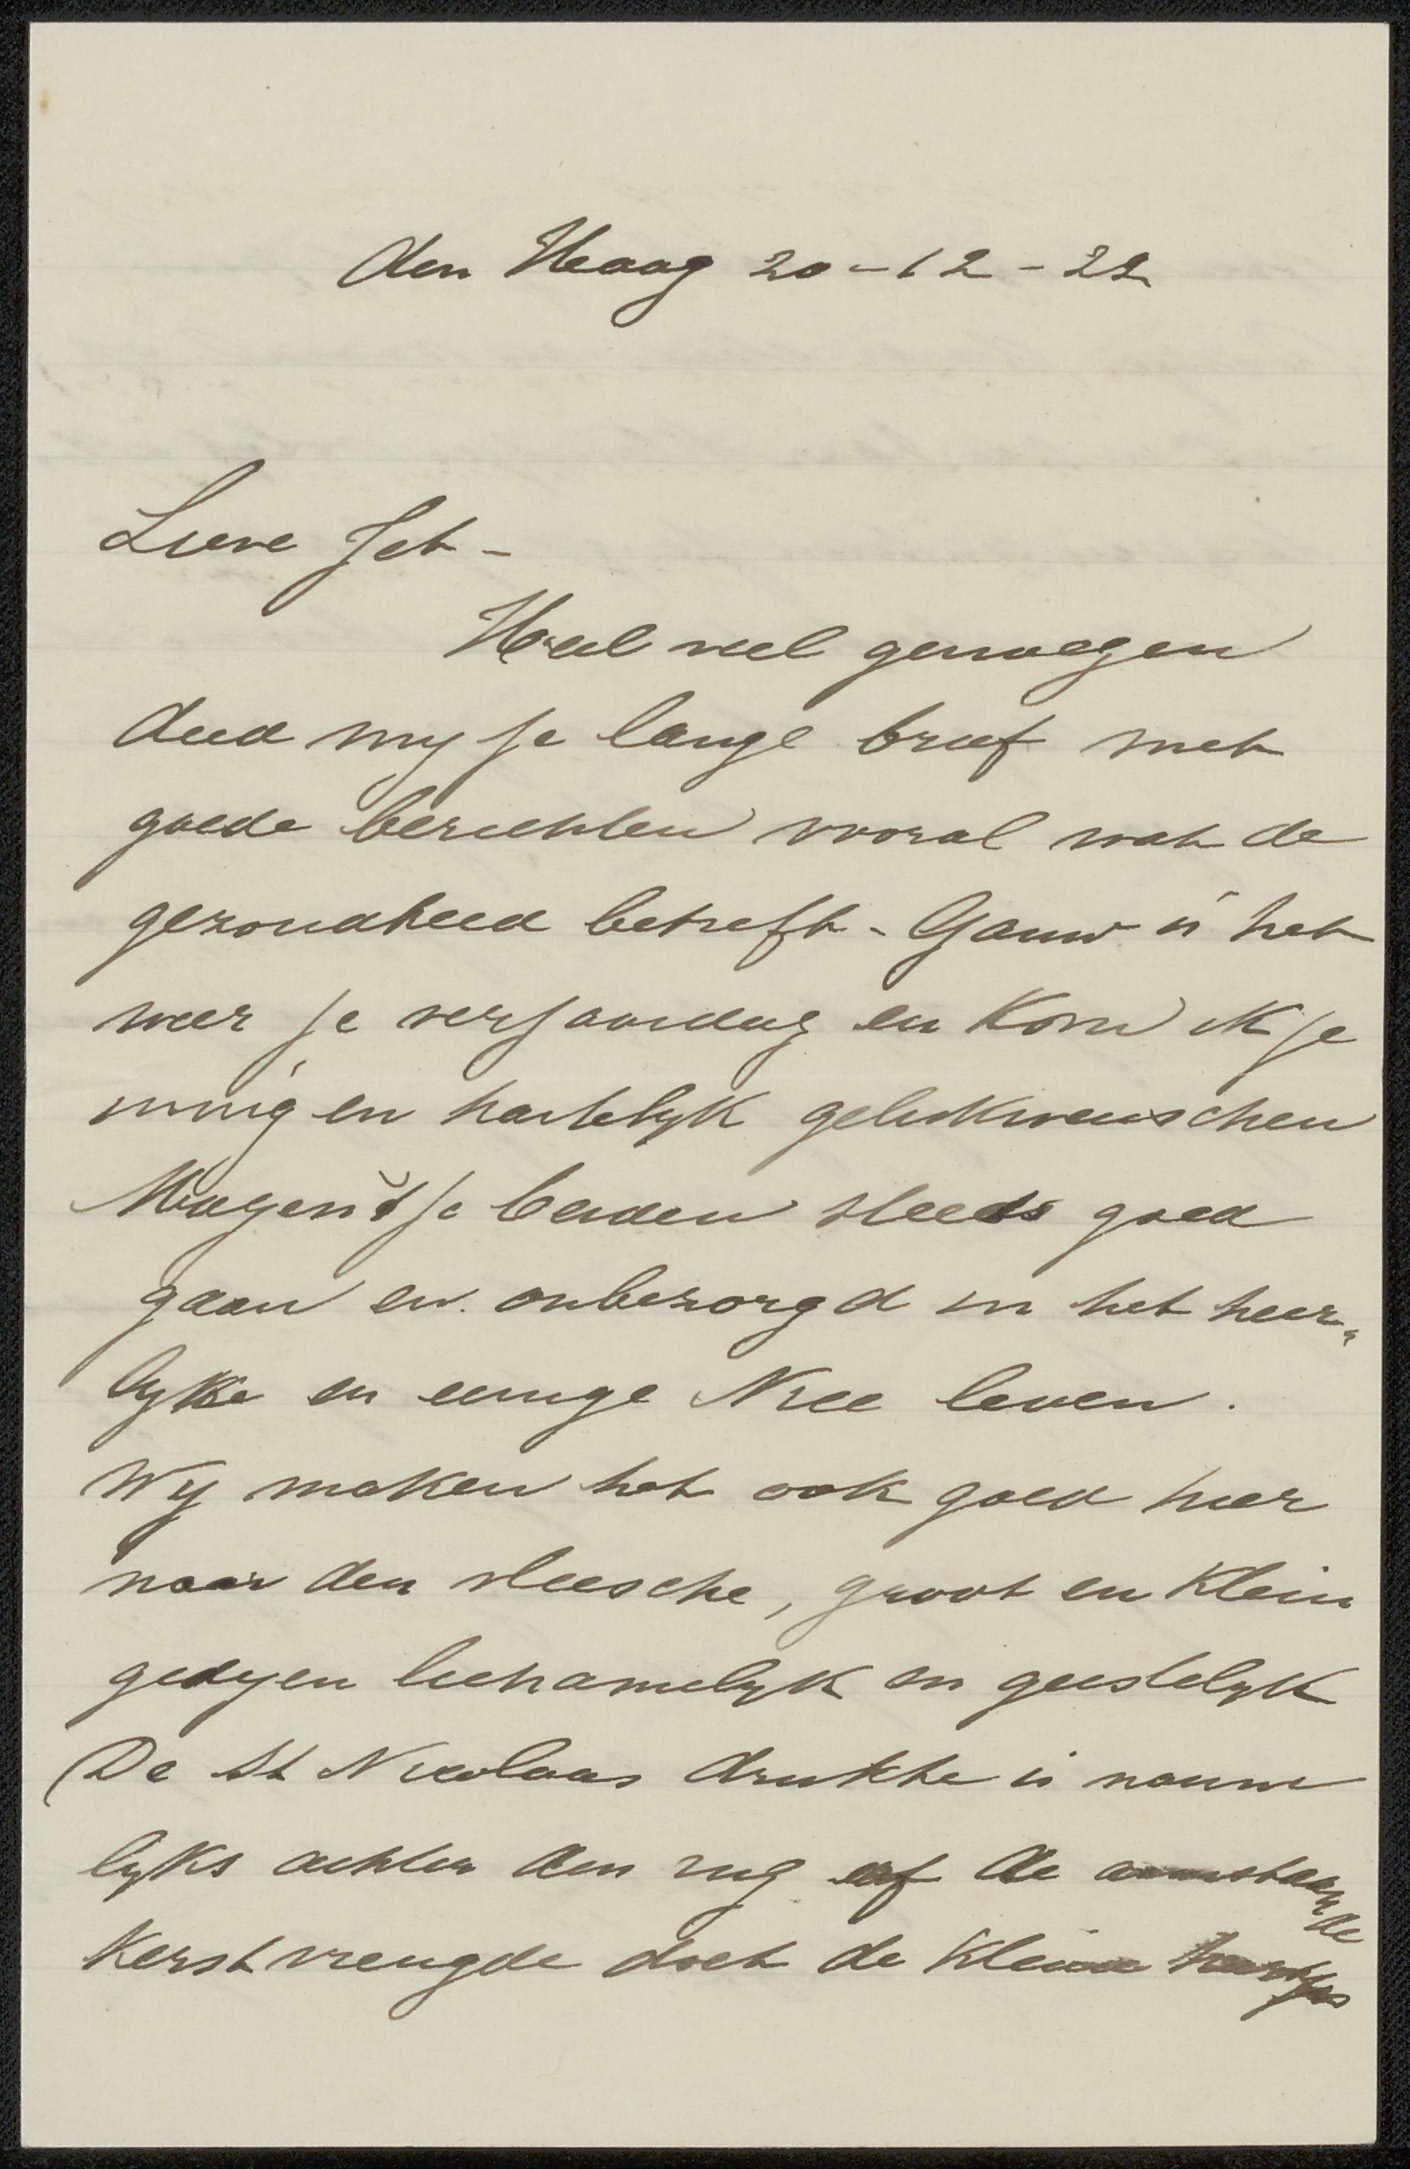 den Haag 20-12-22
Lieve Jet -
Heel veel genoegen
deed my je lange brief met
goede berichten vooral wat de
gezondheid betreft - Gauw is het
weer je verjaardag en kom ik je
innig en hartelyk gelukwenschen
Mogen 't je beiden steeds goed
gaan en onbezorgd in het heer-
lyke en eenige Nice leven.
Wy maken het ook goed hier
naar den vleesche, groot en klein
gedyen lichamelyk en geestelyk
De St Nicolaas drukte is nauwe
lyks achter den rug of de aanstaande
Kerstvreugde doet de kleine hartjes